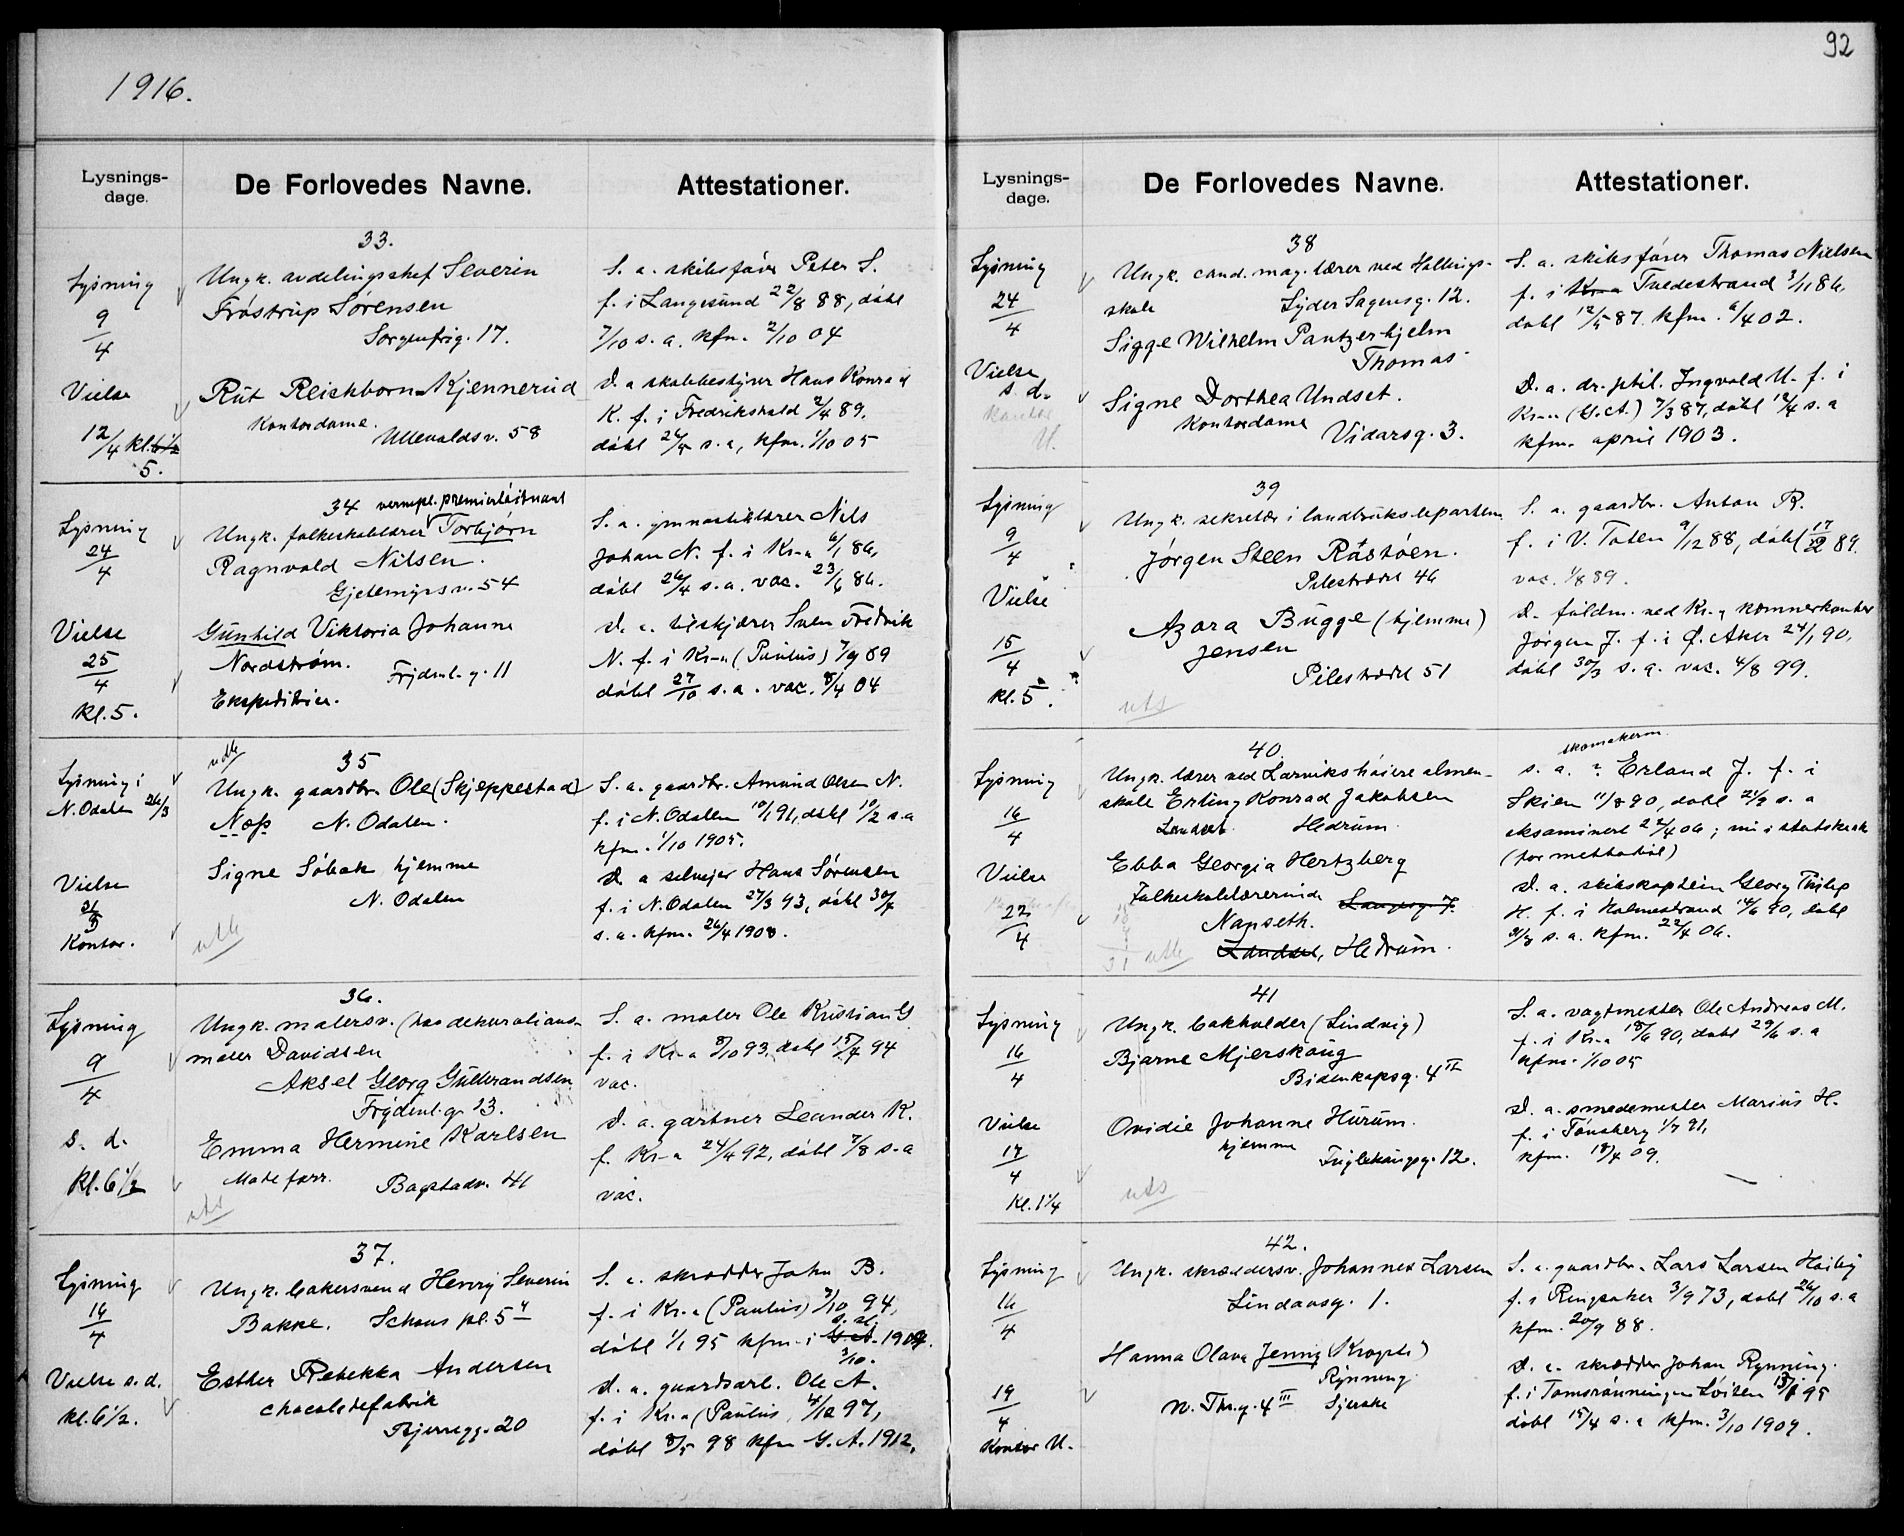 1916.
Lysnings-
dage.
De Forlovedes Navne.
Attestationer.
33.
Lysning
9/4
Vielse
12/4 kl. 6½
5.
Ungk. avdelingschef Severin
Frøstrup Sørensen
Sorgenfrig. 17.
Rut Reichborn-Kjennerud
Kontordame.
Ullevoldsv. 58
S. a. skibsfører Peter S.
f. i Langesund 22/8 88, døbt
7/10 s. a. kfm. 2/10 04
D. a skolebestyrer Hans Konrad
K. f. i Fredrikshald 2/4 89.
døbt 26/5 s. a, kfm. 1/10 05
34 vernepl. premierløitnant
Lysning
24/4
Vielse
25/4
kl. 5.
Ungk. folkeskolelærer Torbjørn
Ragnvald Nilsen.
Gjetemyrsv. 54
Gunhild Viktoria Johanne
Nordström.
Frydenl. g. 11
Ekspeditrice.
S. a. gymnastiklærer Nils
Johan N. f. i Kr-a 6/1 86,
døbt 26/4 s. a. vac. 23/6 86.
D. a. tilskjærer Sven Fredrik
N. f. i Kr-a (Paulus) 7/9 89
døbt 27/10 s. a. vac. 8/4 04
35
Lysning i
N. Odalen 26/3
Vielse
Kontor.
Ungk. gaardbr. Ole (Skjeppestad)
Næss N. Odalen.
Signe Søbak hjemme
N. Odalen
utb
S. a. gaardbr. Amund Olsen N.
f. i N. Odalen 10/1 91, døbt 10/2 s. a
kfm. 1/10 1905.
D. a selveier Hans Sørensen
f. i N. Odalen 27/3 93, døbt 30/7
s. a. kfm. 26/4 1908.
36.
Lysning
9/4
s. d.
kl. 6½
Ungk. malersv. (hos dekorations-
maler Davidsen
Aksel Georg Gulbrandsen
Frydenl. g. 13.
Emma Hermine Karlsen
Modeforr. Bogstadv. 41
uts
S. a. maler Ole Kristian G.
f. i Kr-a 8/10 93, døbt 15/4 94
vac.
D. a. gartner Leander K.
f. Kr-a 24/4 92, døbt 7/8 s. a
vac.
37.
Lysning
16/4
Vielse s. d.
kl. 6½.
Ungk. bakersvend Henry Severin
Bakke. Schous pl. 5
Esther Rebekka Andersen
chocoladefabrik
Bjerregg. 20
S. a. skrædder John B.
f. i Kr-a (Paulus) 7/10 94,
døbt 1/1 95 kfm. i G. A. 1909.
3/10.
D. a. gaardsarb. Ole A.
f. i Kr. a (Paulus, 4/12 97,
døbt 8/5 98 kfm G. A. 1912.
92
Lysnings-
dage.
De Forlovedes Navne.
Attestationer.
38
Lysning
24/4
Vielse
s. d.
Ungk. cand. mag. lærer ved Hallings-
skole Lyder Sagensg. 12.
Sigge Wilhelm Pantzerhjelm
Thomas
Signe Dorthea Undset.
Kontordame
Vidarsg. 3.
S. a. skibsfører Thomas Nielsen
f. i Kr-a Tvedestrand 3/11 86,
døbt 12/5 87. kfm. 6/4 02.
D. a. dr. phil. Ingvald U. f. i
Kr-a (G. A.) 7/3 87, døbt 12/4 s. a
kfm. april 1903.
39
Lysning
9/4
Vielse
15/4
kl. 5.
Ungk. sekretær i landbruksdepartem
Jørgen Steen Råstøen.
Pilestrædet 46
Azora Bugge (hjemme)
Jensen
Pilestrædet 51
uts
S. a. gaardbr. Anton R.
f. i V. Toten 9/12 88, døbt 17/2 89.
vac. 1/8 89.
D. fuldm. ved Kr. a kæmnerkontor
Jørgen J. f. i Ø. Aker 24/1 90,
døbt 30/3 s. a. vac. 4/8 99.
40.
Lysning
16/4
Vielse
22/4
Ungk. lærer ved Larviks høiere almen-
skole Erling Konrad Jakobsen
Hedrum.
Ebba Georgia Hertzberg
Folkeskolelærerinde Langesg. 7.
Nanseth.
Hedrum.
utb
skomakerm.
S. a. Erland J. f. i
Skien 11/8 90, døbt 21/9 s. a
eksaminert 22/4 06; nu i statskirk
(før methodist)
D. a. skibskaptein Georg Philip
H. f. i Holmestrand 14/6 90, døbt
31/8 s. a. kfm. 22/4 06.
41
Lysning
16/4
Vielse
17/4
kl. 1¼
Ungk. bokholder (Lindvig)
Bjarne Mjerskaug
Bidenkapsg. 4 II
Ovidie Johanne Hurum.
hjemme
Fuglehaugsg. 12.
uts
S. a. vagtmester Ole Andreas M.
f. i Kr-a 18/6 90, døbt 29/6 s. a
kfm. 1/10 05
D. a. smedemester Marius H.
f. i Tønsberg 1/7 91,
kfm. 18/4 09.
42.
Lysning
16/4
19/4
Kontor U.
Ungk. skræddersv. Johannes Larsen
Lindausg. 1.
Hanna Olava Jenny (Kragste)
Rynning
N. Thr. g. 4 III Syerske
S. a. gaardbr. Lars Larsen Høiby
f. i Ringsaker 3/9 73, døbt 26/10 s. a
kfm. 20/9 88.
D. a. skrædder Johan Rynning.
f. i Tomsrønningen Løiten
døbt 15/4 s. a kfm. 3/10 1909.